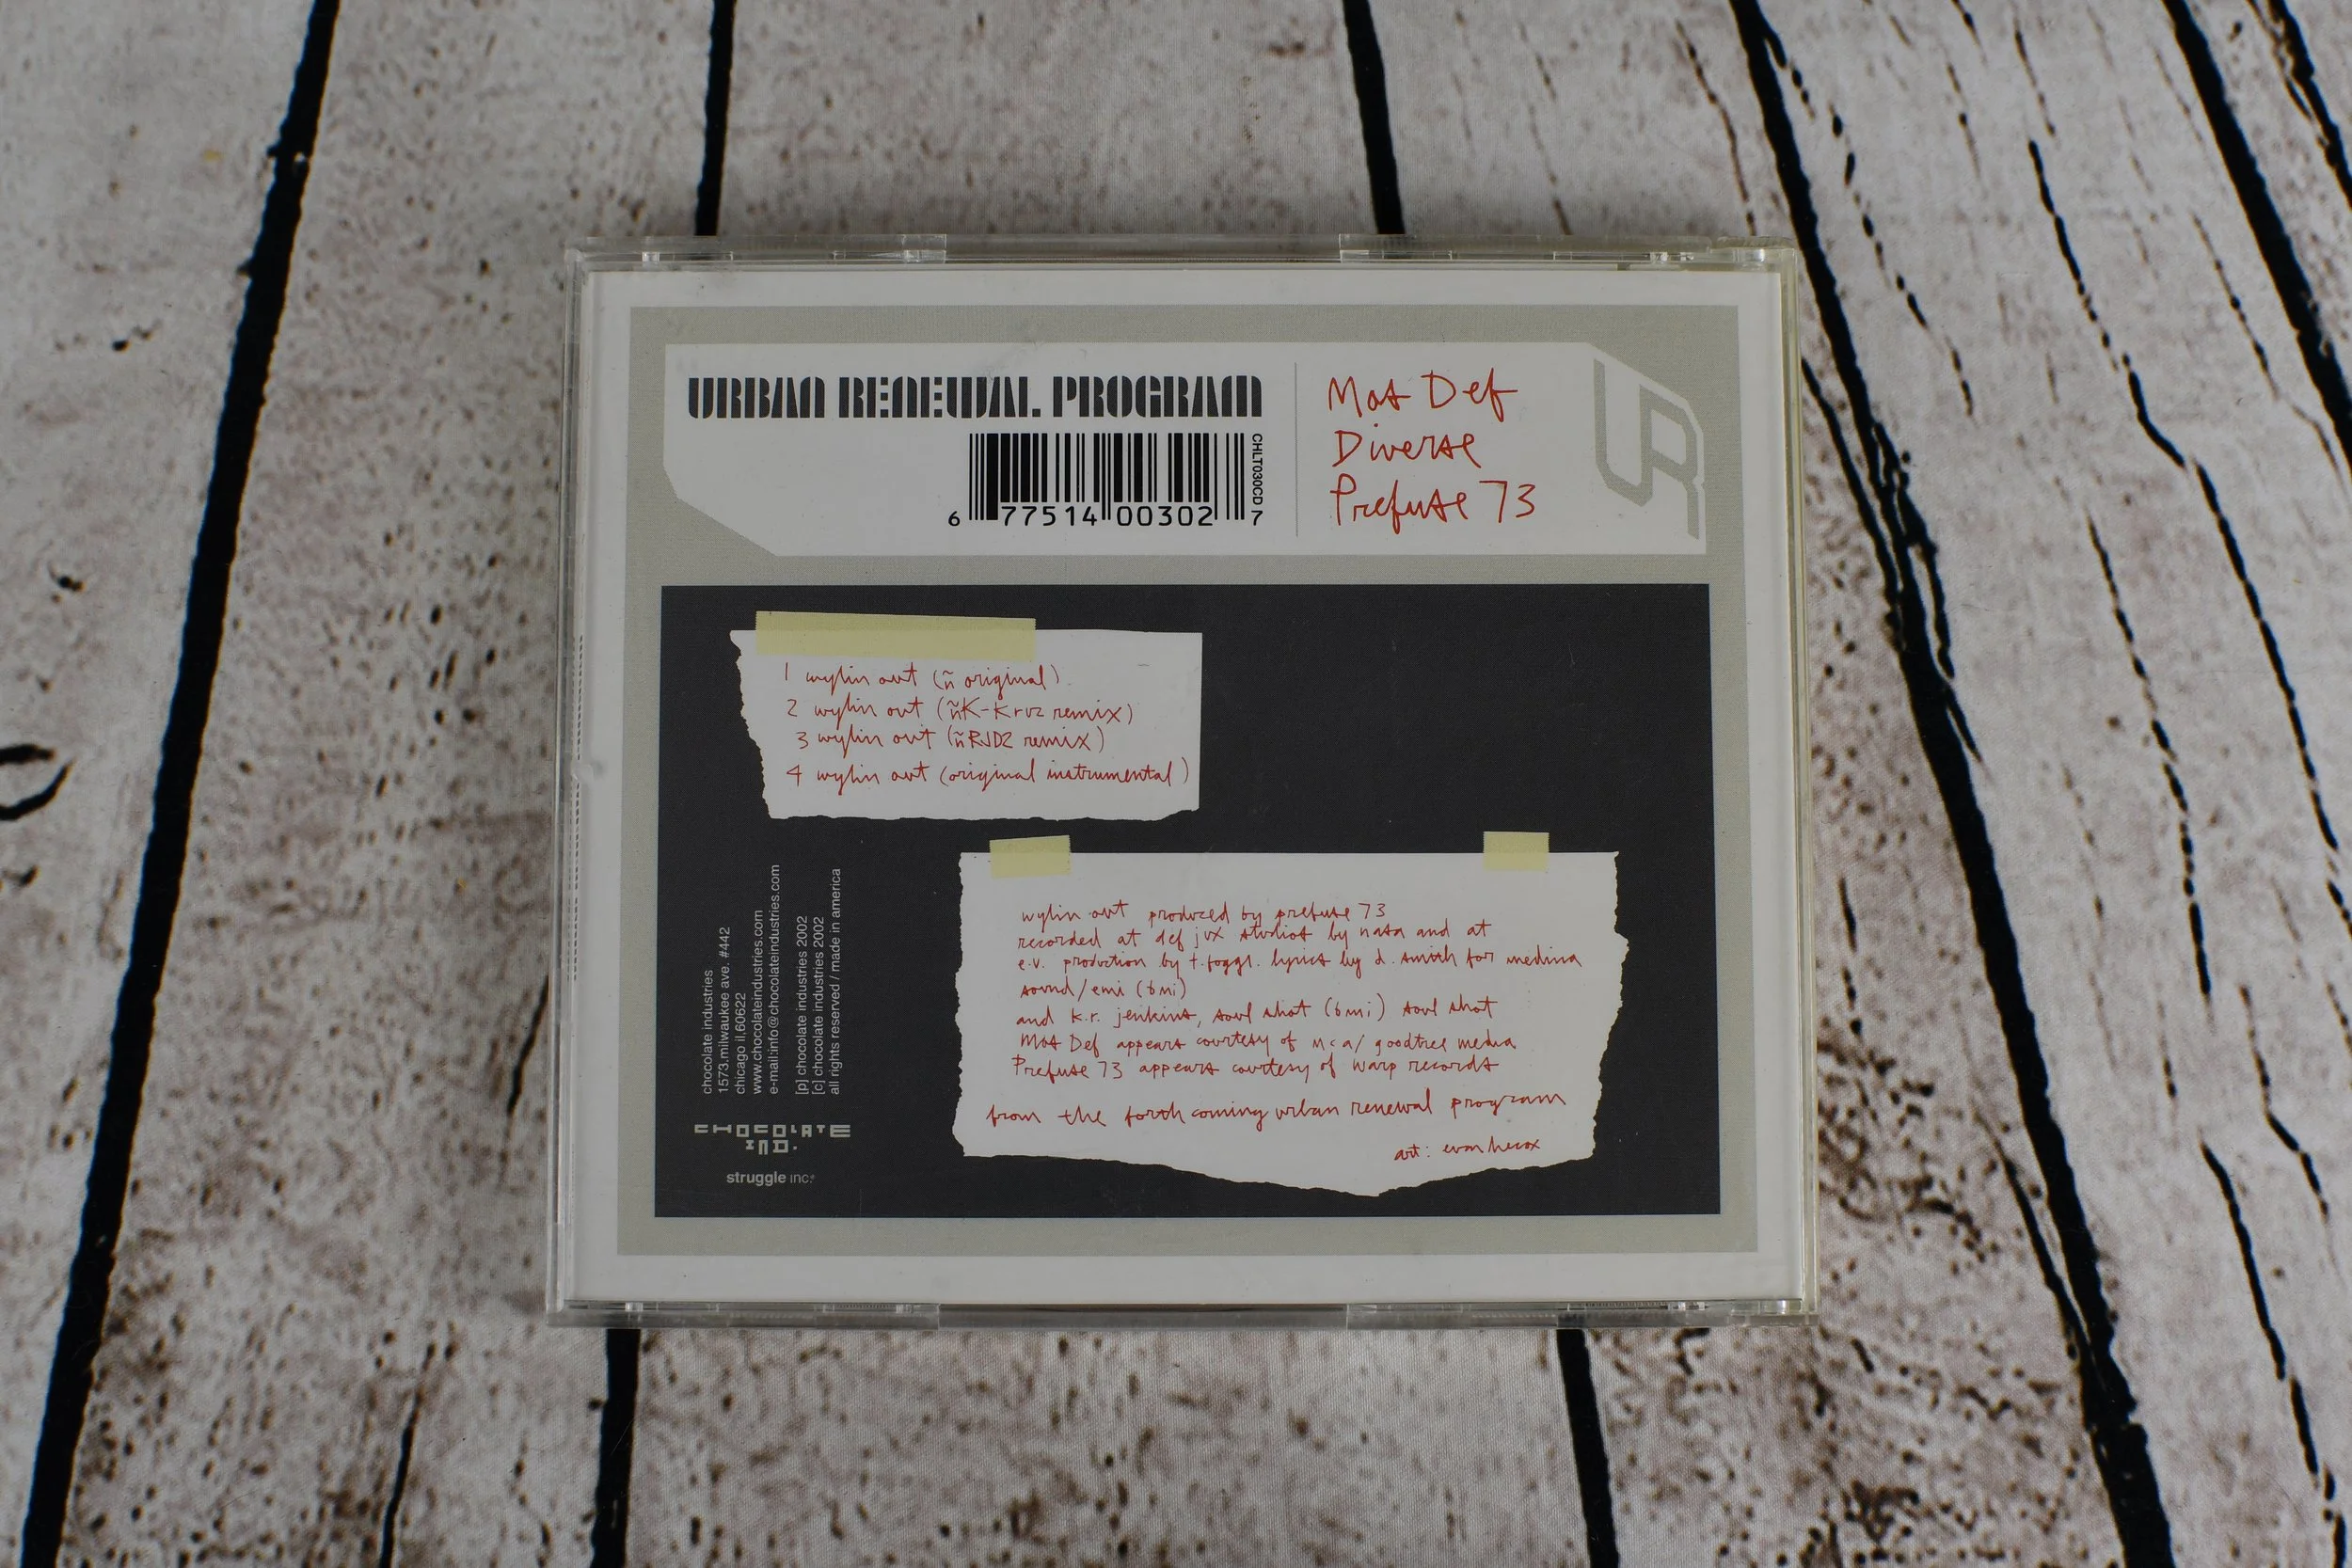 URBAN RENEWAL PROGRAM
CHLT030CD
6 77514 00302 7
Mos Def
Diverse
Prefuse 73
UR
1 wylin out (ñ original)
2 wylin out (ñK-Kruz remix)
3 wylin out (ñRJD2 remix)
4 wylin out (original instrumental)
wylin out produced by prefuse 73
recorded at def jux studios by nasa and at
e.v. production by t.foggl. lyrics by d. smith for medina
sound/emi (bmi)
and k.r. jenkins, soul shot (bmi) soul shot
Mos Def appears courtesy of mca/goodtree media
Prefuse 73 appears courtesy of warp records
from the forthcoming urban renewal program
art: evan hecox
chocolate industries
1573.milwaukee ave. #442
chicago il.60622
www.chocolateindustries.com
e-mail:info@chocolateindustries.com
[p] chocolate industries 2002
[c] chocolate industries 2002
all rights reserved / made in america
CHOCOLATE
IND.
struggle inc.